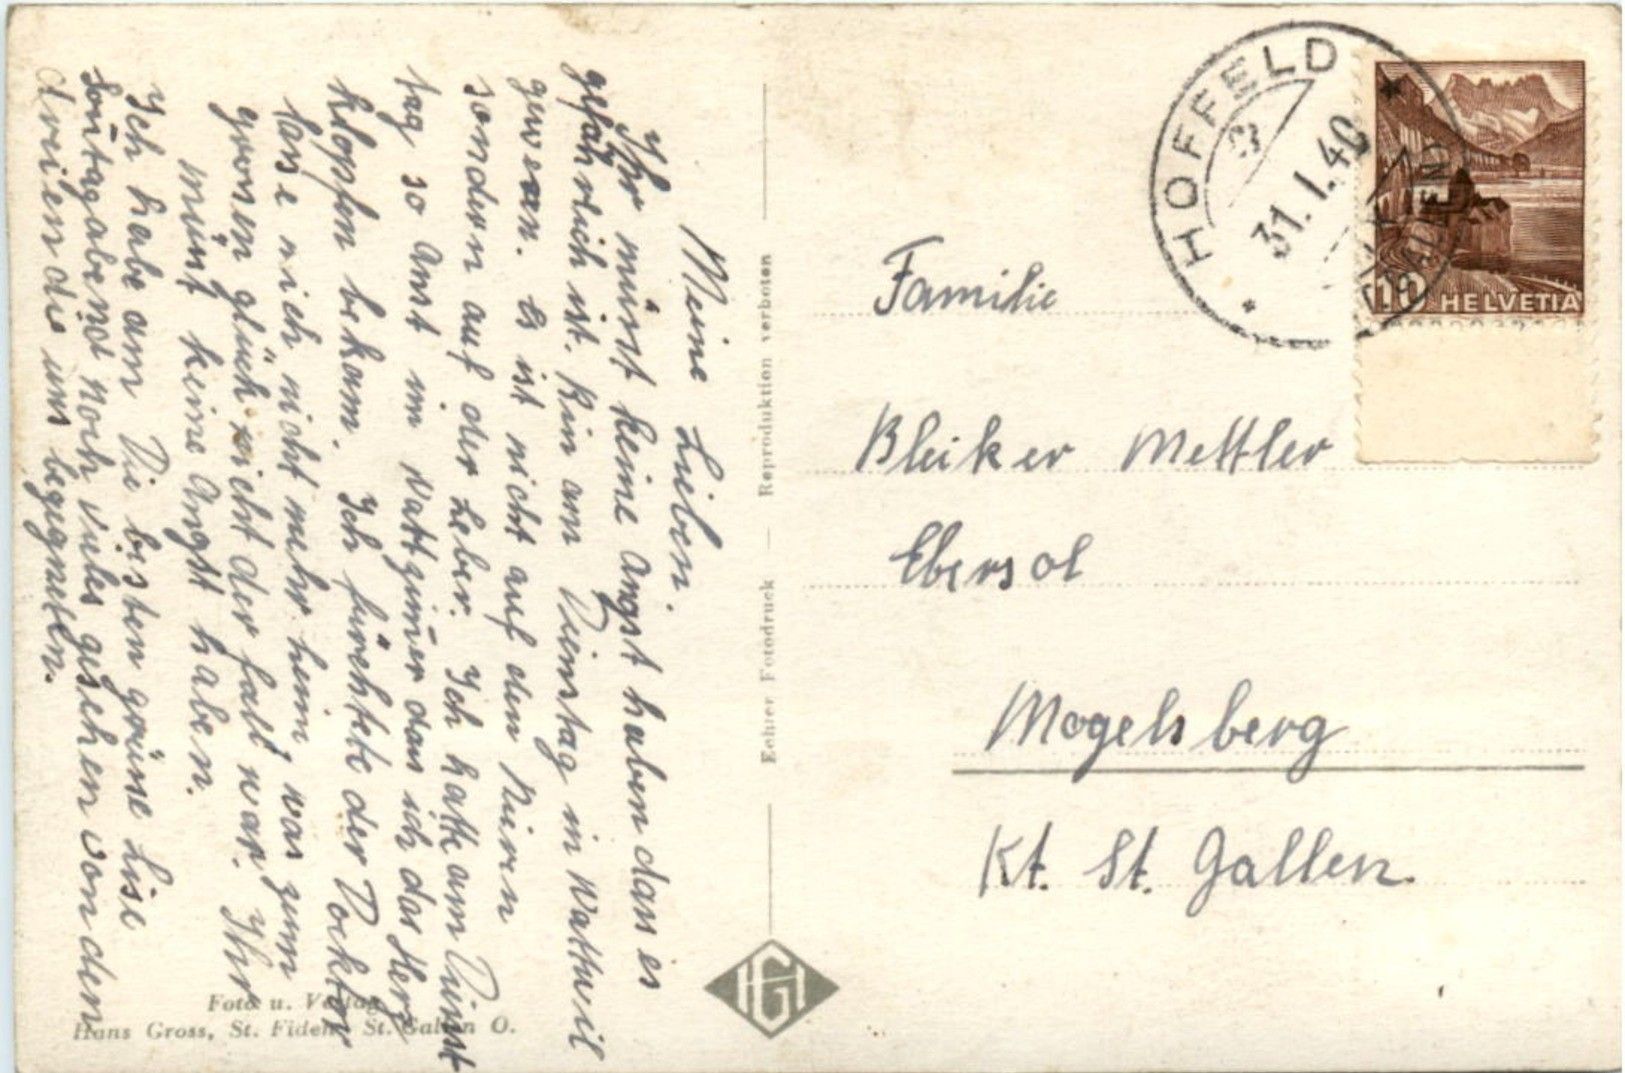 Meine Lieben.
Ihr müsst keine Angst haben das es
gefährlich ist. Bin am Dienstag in Wattwil
gewesen. Es ist nicht auf den Nieren
sondern auf der Leber. Ich hatte am Dienst
tag so Amst im Wattzimer das ich das Herz
klopfen bekam. Ich fürchtete der Docktor
lase mich nicht mehr heim, was zum
grosen glück nicht der fall war. Ihr
müst keine Angst haben.
Ich habe am Die besten grüne Lise
Sontagabend noch vieles gesehen von den
dvoilen die uns begegneten.
Foto u. Verlag
Hans Gross, St. Fiden, St. Gallen O.
Echter Fotodruck — Reproduktion verboten
HG
HOFFELD
31.I.40
(ST. GALLEN)
10 HELVETIA
Familie
Bleiker Mettler
Ebersol
Mogelsberg
Kt. St. Gallen.